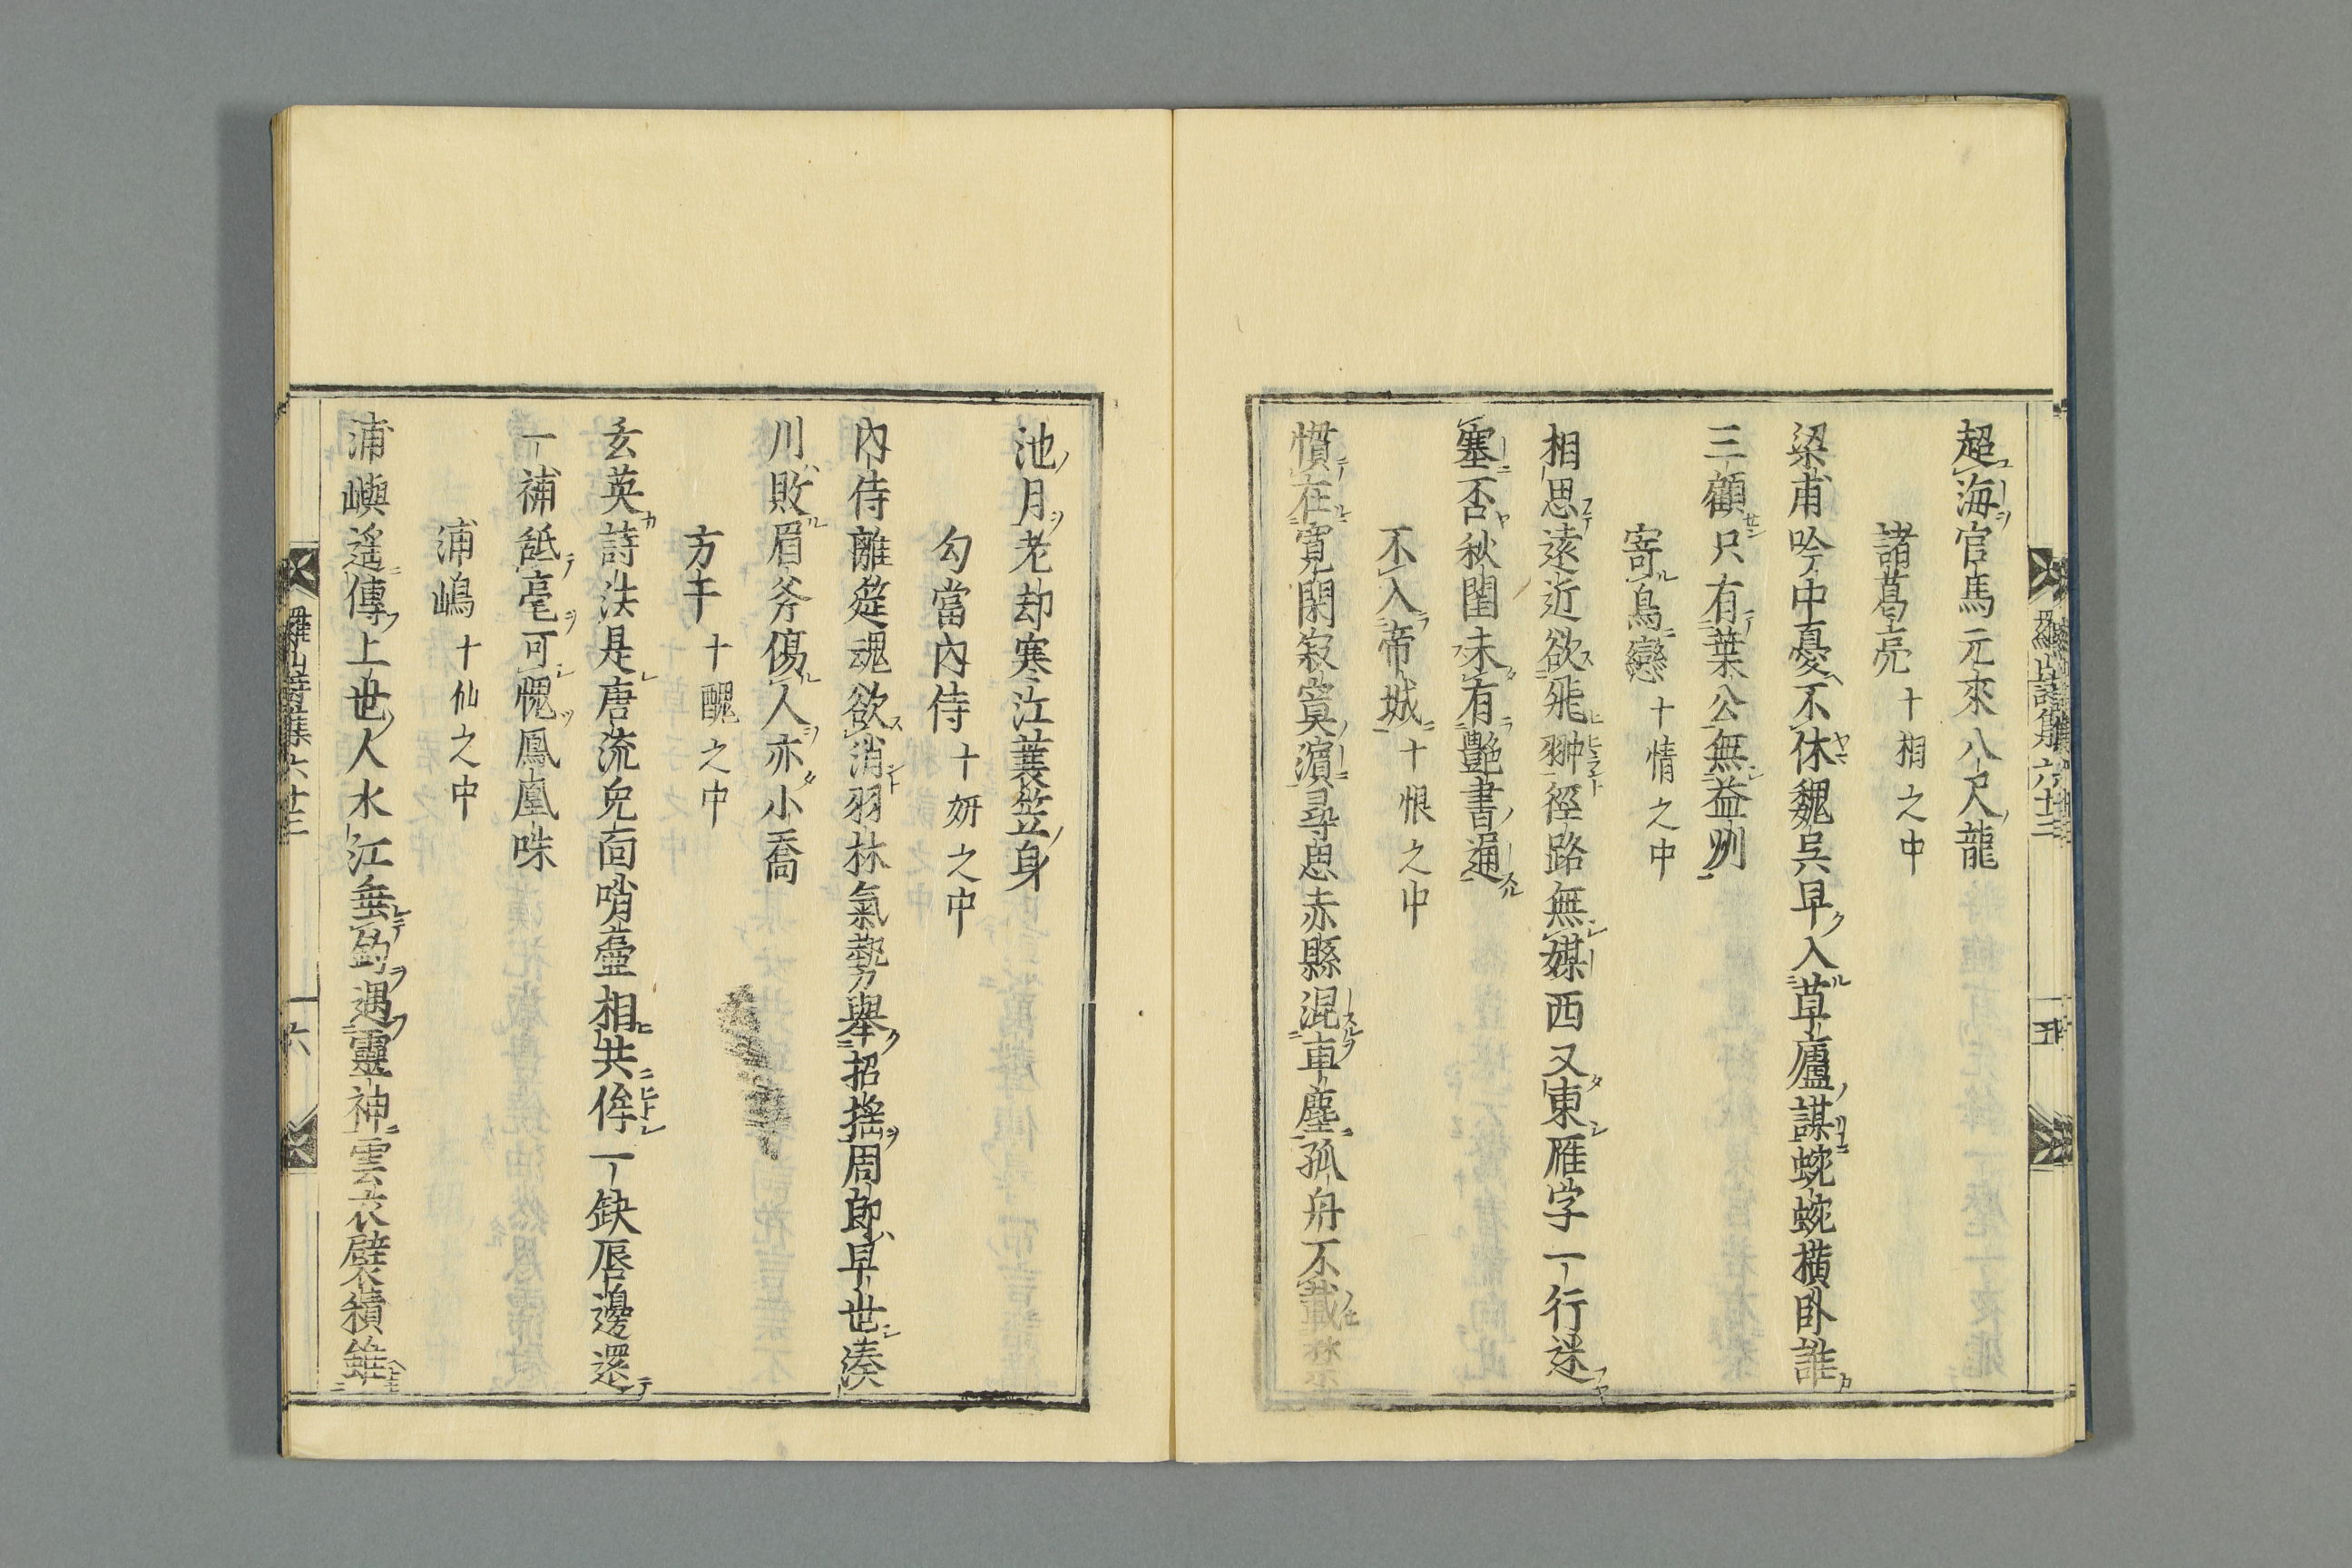 超海官馬元來八尺龍
諸葛亮 十相之中
梁甫吟中憂不休魏呉早入草廬謀蜿蜿横臥誰
三顧只有葉公無益州
寄鳥戀 十情之中
相思遠近欲飛翀徑路無媒西又東雁字一行迷
塞否秋閨未有艶書通
不入帝城 十恨之中
慣在寬閑寂寞濵尋思赤縣混車塵孤舟不載禁
池月老却寒江蓑笠身
勾當內侍 十妍之中
內侍離筵魂欲消羽林氣勢舉招搖周郎早世湊
川敗眉斧傷人亦小喬
方干 十醜之中
玄英詩法是唐流兔面哨壺相共侔一缺唇邊還
一補舐毫可愧鳳凰咮
浦嶋 十仙之中
浦嶼遙傳上世人水江垂鈎遇靈神雲衣襞積雖
羅山詩集六十三
五
六